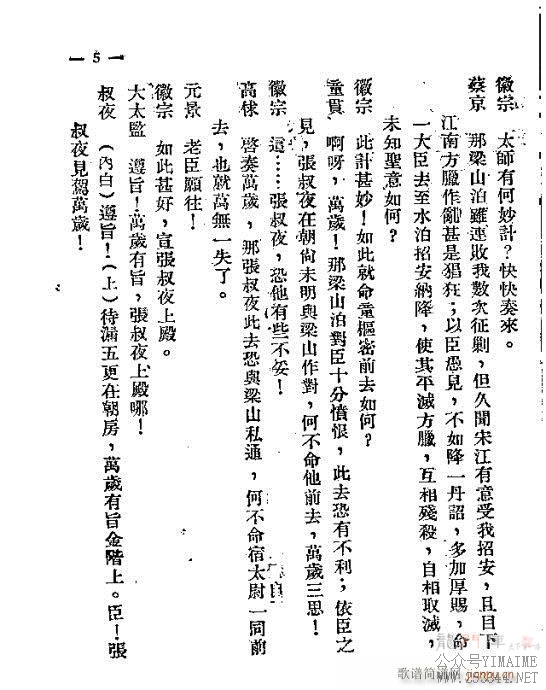 徽宗　太師有何妙計？快快奏來。
蔡京　那梁山泊雖連敗我數次征剿，但久聞宋江有意受我招安，且目下
江南方臘作亂甚是猖狂；以臣愚見，不如降一丹詔，多加厚賜，命
一大臣去至水泊招安納降，使其平滅方臘，互相殘殺，自相取滅，
未知聖意如何？
徽宗　此計甚妙！如此就命童樞密前去如何？
童貫　啊呀，萬歲！那梁山泊對臣十分憤恨，此去恐有不利；依臣之
見，張叔夜在朝尚未明與梁山作對，何不命他前去，萬歲三思！
徽宗　這……張叔夜，恐他有些不妥！
高俅　啓奏萬歲，那張叔夜此去恐與梁山私通，何不命宿太尉一同前
去，也就萬無一失了。
元景　老臣願往！
徽宗　如此甚好，宣張叔夜上殿。
大太監　遵旨！萬歲有旨，張叔夜上殿哪！
叔夜　（內白）遵旨！（上）待漏五更在朝房，萬歲有旨金階上。臣！張
叔夜見駕萬歲！
— 5 —
公众号YIMAIME
歌谱简谱网